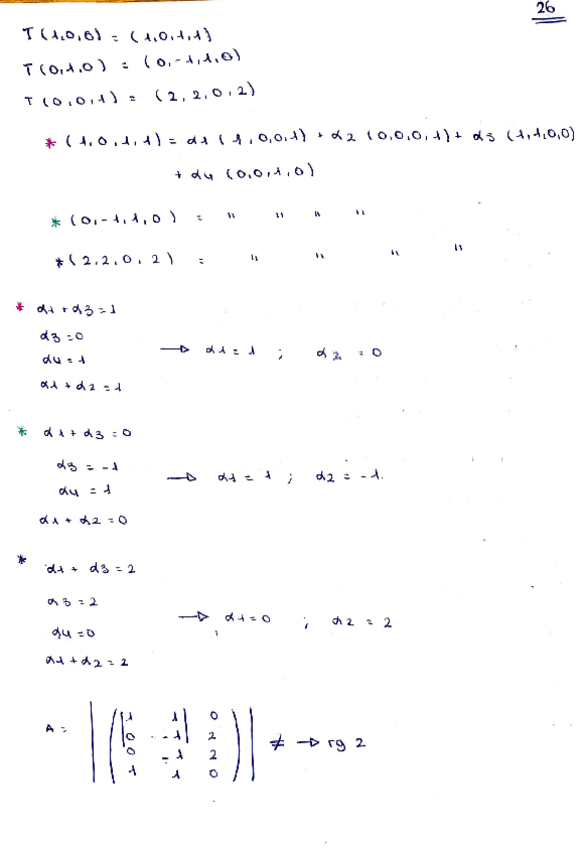 26
T(1,0,0) = (1,0,1,1)
T(0,1,0) = (0,-1,1,0)
T(0,0,1) = (2,2,0,2)
* (1,0,1,1) = α1 (1,0,0,1) + α2 (0,0,0,1) + α3 (1,1,0,0)
+ α4 (0,0,1,0)
* (0,-1,1,0) = " " " "
* (2,2,0,2) = " " " "
* α1 + α3 = 1
α3 = 0
α4 = 1 → α1 = 1 ; α2 = 0
α1 + α2 = 1
* α1 + α3 = 0
α3 = -1
α4 = 1 → α1 = 1 ; α2 = -1.
α1 + α2 = 0
* α1 + α3 = 2
α3 = 2
α4 = 0 → α1 = 0 ; α2 = 2
α1 + α2 = 2
1 1 0
0 -1 2
A = ≠ → rg 2
0 -1 2
1 1 0